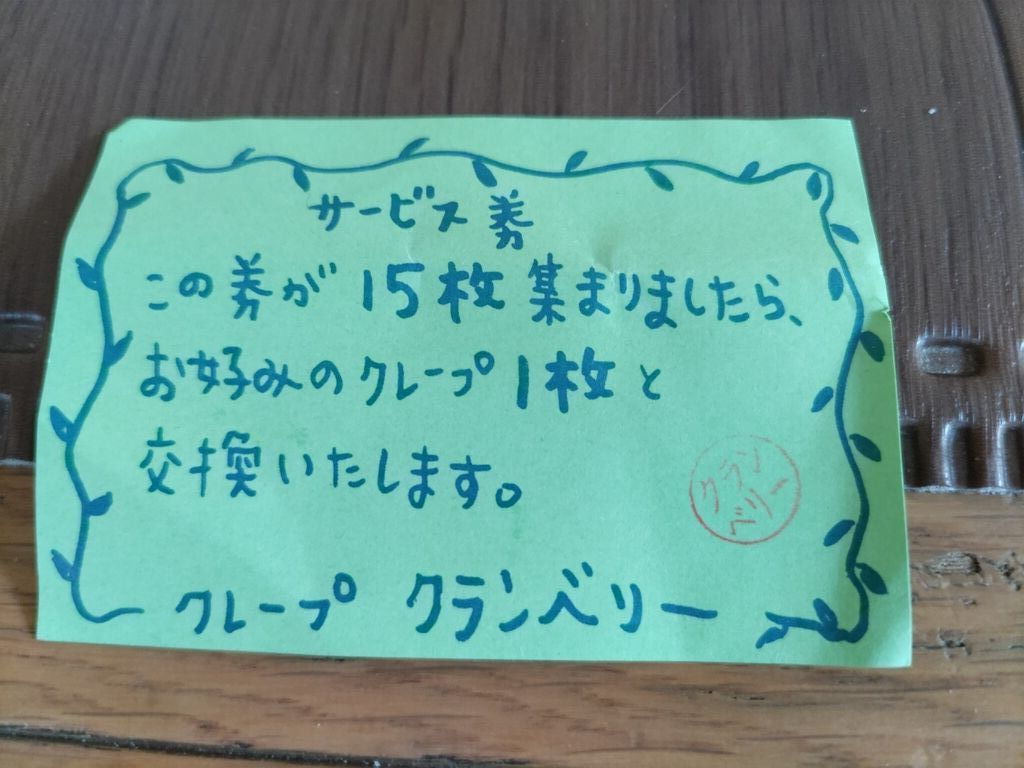 サービス券
この券が15枚集まりましたら、
お好みのクレープ1枚と
交換いたします。
クラン
ベリー
クレープ クランベリー